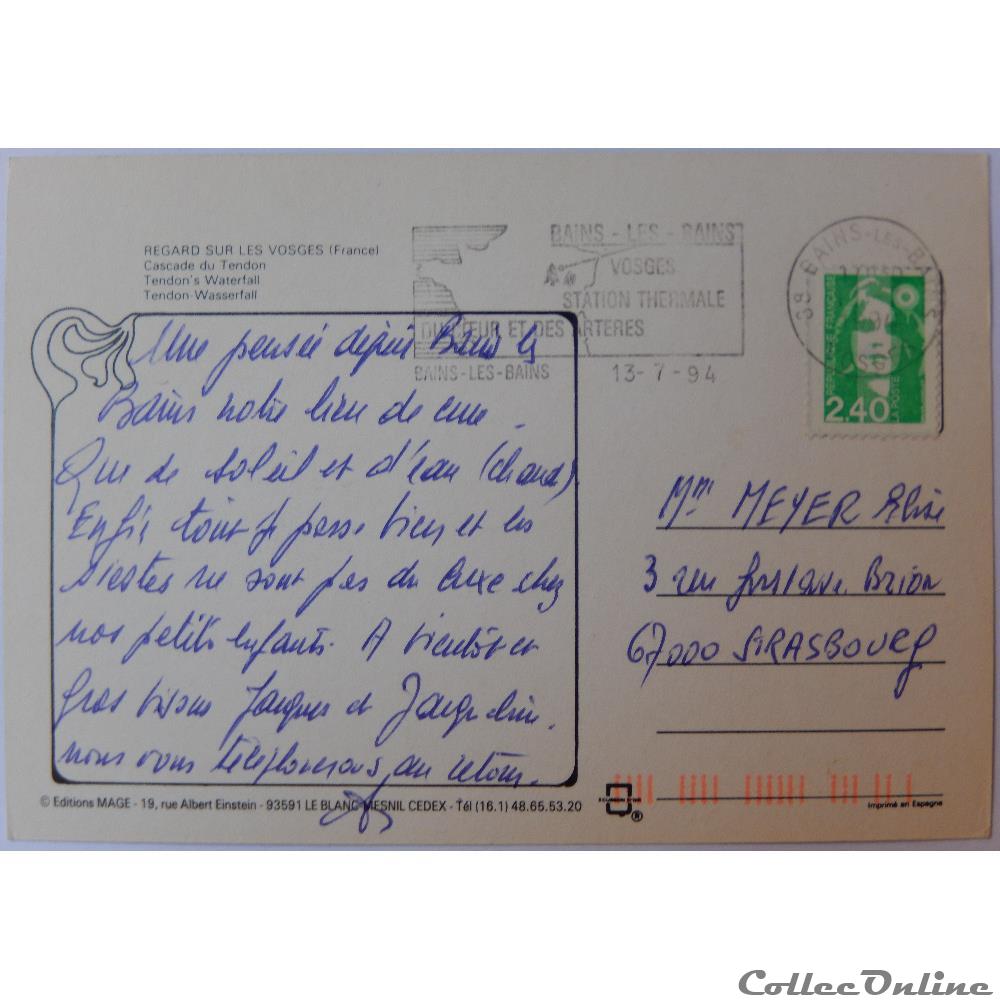 REGARD SUR LES VOSGES (France)
Cascade du Tendon
Tendon's Waterfall
Tendon-Wasserfall
BAINS - LES - BAINS
VOSGES
STATION THERMALE
DU CŒUR ET DES ARTERES
BAINS-LES-BAINS
13-7-94
88 BAINS-LES-BAINS
VOSGES
RÉPUBLIQUE FRANÇAISE
LA POSTE
2.40
Une pensée depuis Bains les
Bains notre lieu de cure.
Que de soleil et d'eau (chaude)
Enfin tout se passe bien et les
siestes ne sont pas du luxe chez
nos petits enfants. A bientôt et
gros bisous Jacques et Jacqueline.
nous vous téléphonerons au retour.
Mme MEYER Elise
3 rue Gustave Brion
67000 STRASBOURG
© Editions MAGE - 19, rue Albert Einstein - 93591 LE BLANC-MESNIL CEDEX - Tél (16.1) 48.65.53.20
®
Imprimé en Espagne
CollecOnline